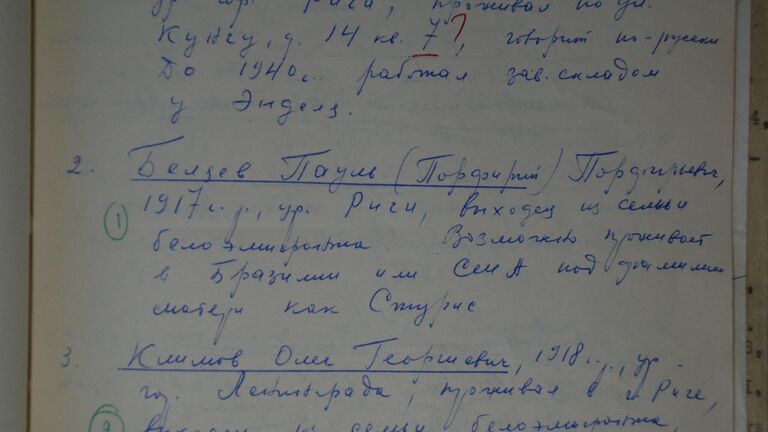 ур. гор. Риги, проживал по ул.
Кунгу, д. 14 кв. 7?, говорит по-русски
До 1940 г. работал зав. складом
у Энделя.
2. Беляев Пауль (Порфирий) Порфирьевич,
1 1917 г. р., ур. Риги, выходец из семьи
белоэмигранта Возможно проживает
в Бразилии или США под фамилией
матери как Стурис
3. Климов Олег Георгиевич, 1918 г. р., ур.
гор. Ленинграда, проживал в г. Риге,
выходец из семьи белоэмигранта,